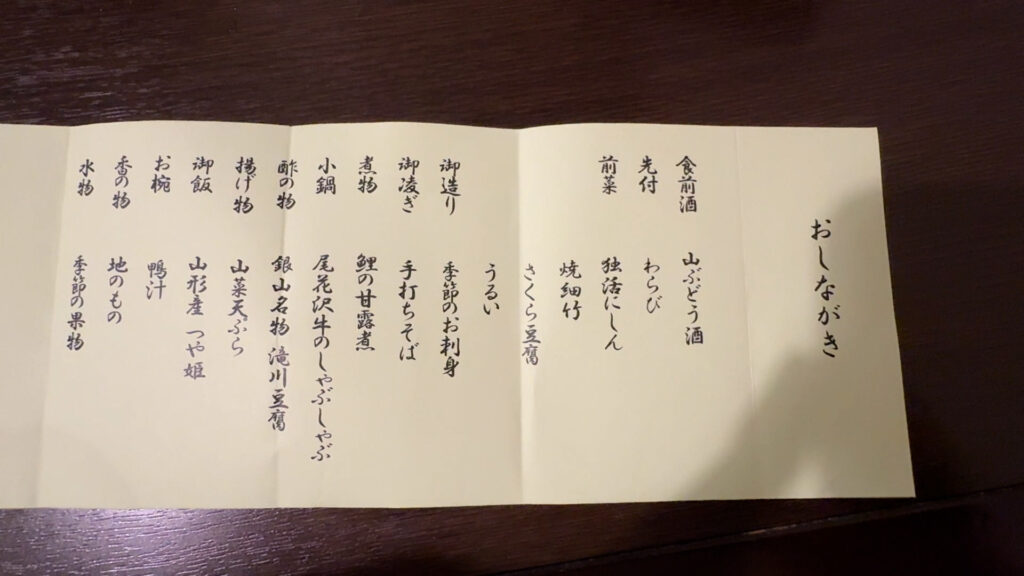 おしながき
食前酒 山ぶどう酒
先付 わらび
前菜 独活にしん
焼細竹
さくら豆腐
うるい
御造り 季節のお刺身
御凌ぎ 手打ちそば
煮物 鯉の甘露煮
小鍋 尾花沢牛のしゃぶしゃぶ
酢の物 銀山名物 滝川豆腐
揚げ物 山菜天ぷら
御飯 山形産 つや姫
お椀 鴨汁
香の物 地のもの
水物 季節の果物